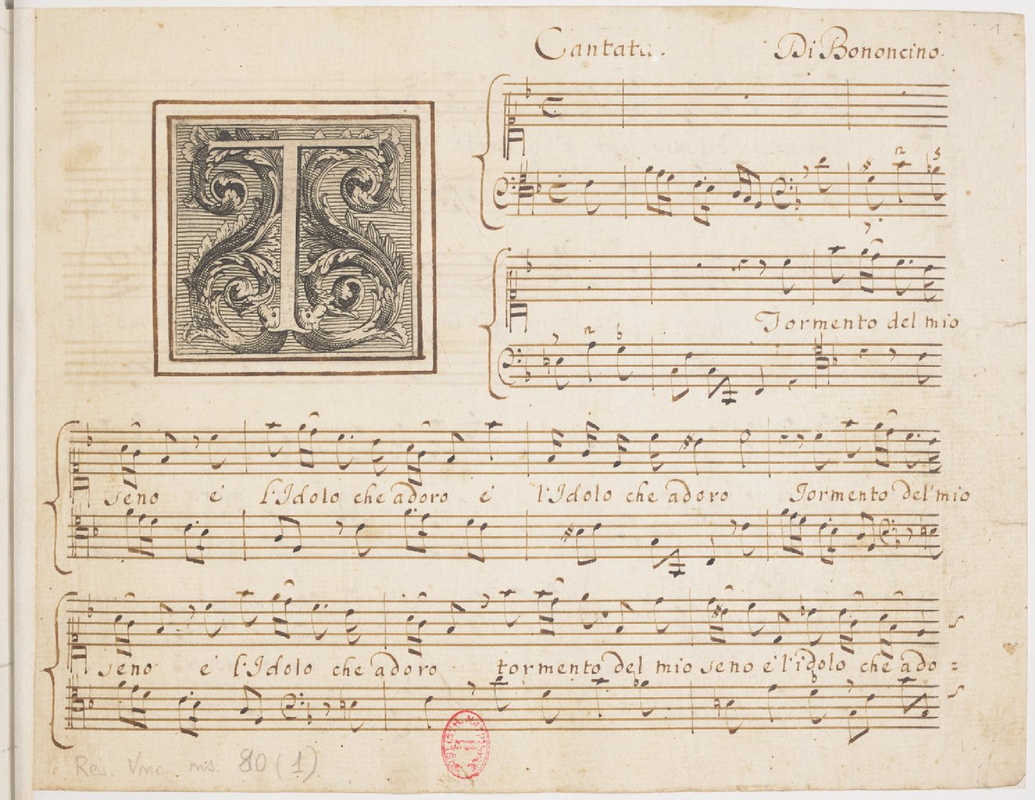 1
Cantata. Di Bononcino.
T
Tormento del mio
seno e' l'Idolo che adoro e' l'Idolo che adoro Tormento del mio
seno e' l'Idolo che adoro tormento del mio seno e' l'idolo che ado =
Res. Vmc. ms. 80 (1)